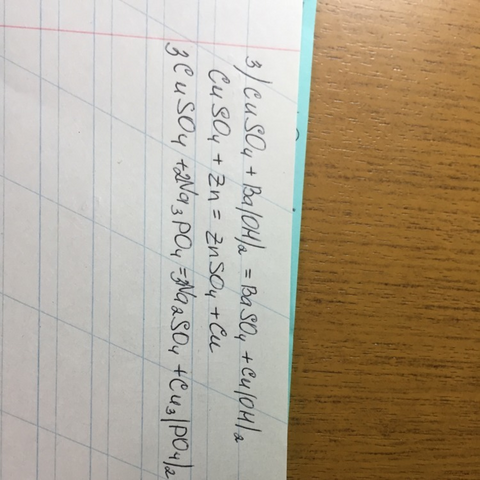 3) CuSO₄ + Ba(OH)₂ = BaSO₄ + Cu(OH)₂
CuSO₄ + Zn = ZnSO₄ + Cu
3CuSO₄ + 2Na₃PO₄ = 3Na₂SO₄ + Cu₃(PO₄)₂